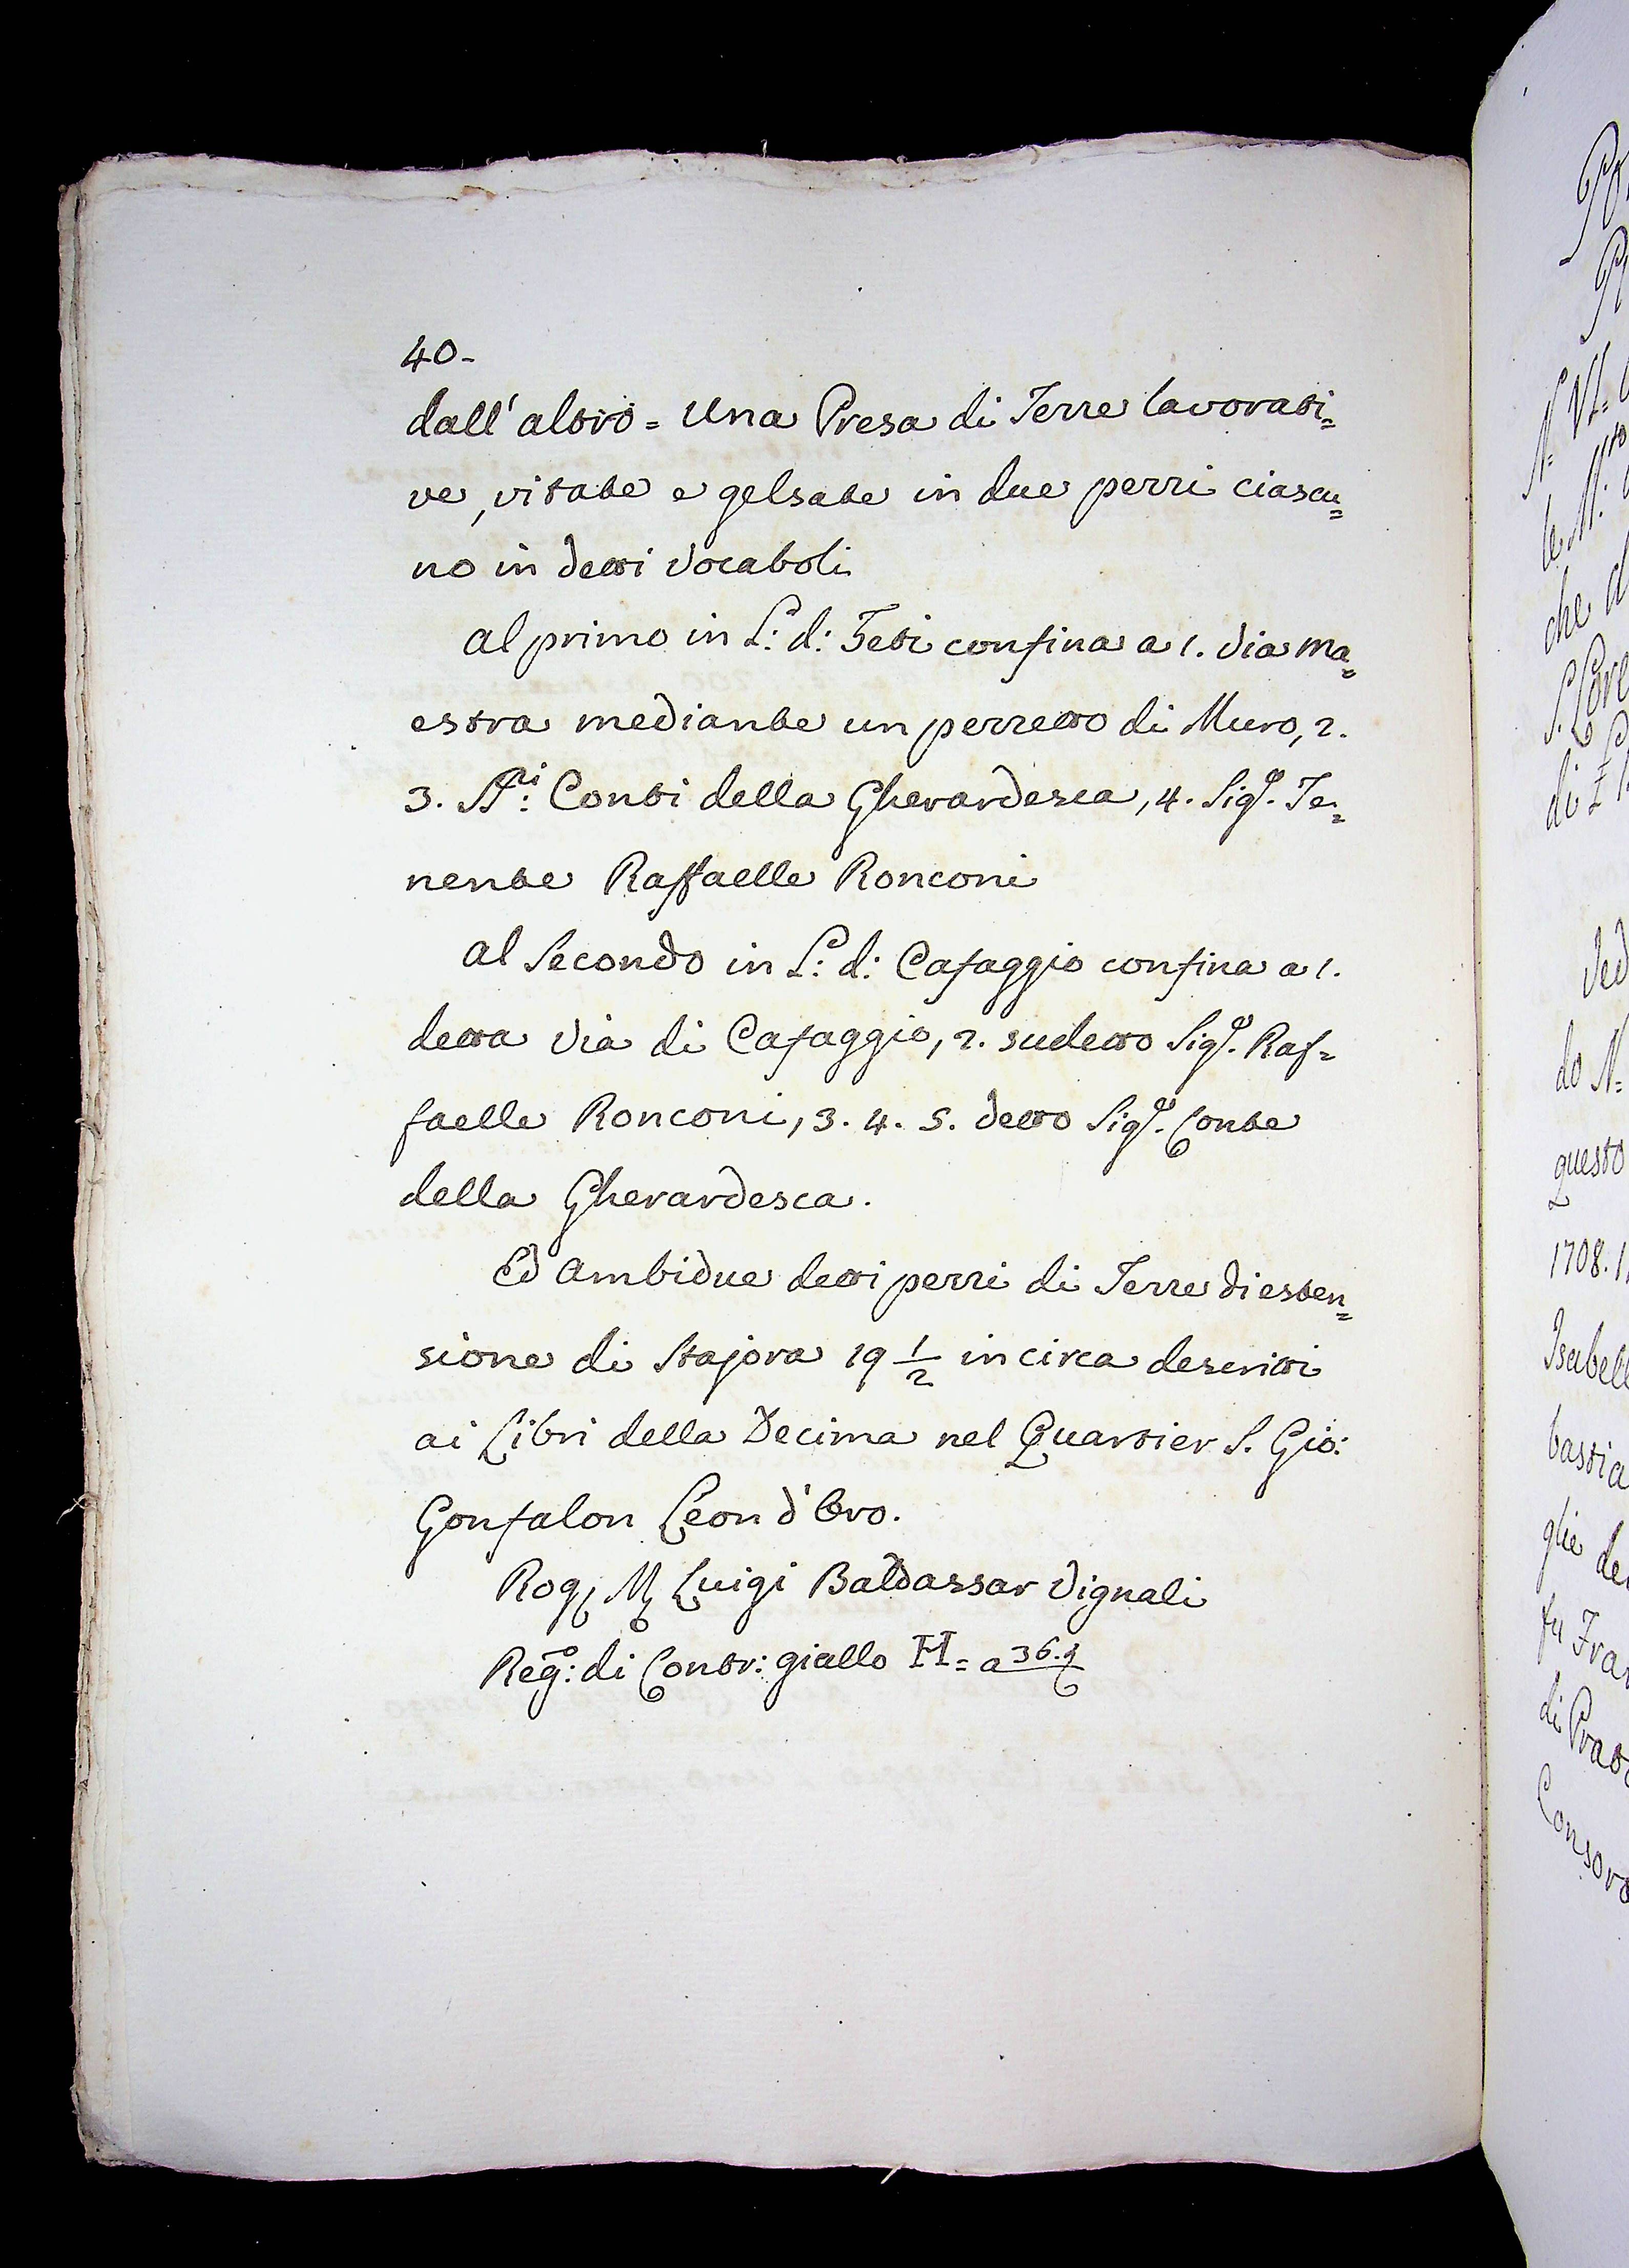 40-
dall'altro = Una Presa di Terre lavorati=
ve, vitate e gelsate in due pezzi ciascu=
no in detti Vocaboli
al primo in L: d: Feti confina a 1. Via ma=
estra mediante un pezzetto di Muro, 2.
3. SS.ri Conti della Gherardesca, 4. Sigr. Te=
nente Raffaelle Ronconi
al Secondo in L: d: Cafaggio confina a 1.
detta Via di Cafaggio, 2. sudetto Sigr. Raf=
faelle Ronconi, 3. 4. 5. detto Sigr. Conte
della Gherardesca.
Ed Ambidue detti pezzi di Terre di esten=
sione di Stajora 19 1/2 in circa descritti
ai Libri della Decima nel Quartier S. Gio:
Gonfalon Leon d'Oro.
Rog. M. Luigi Baldassar Vignali
Rego: di Contr: giallo H = a 36.
Ved
do N=
questo
1708.
Isabell
bastia
glie de
fu Fran
di Prato
Consor